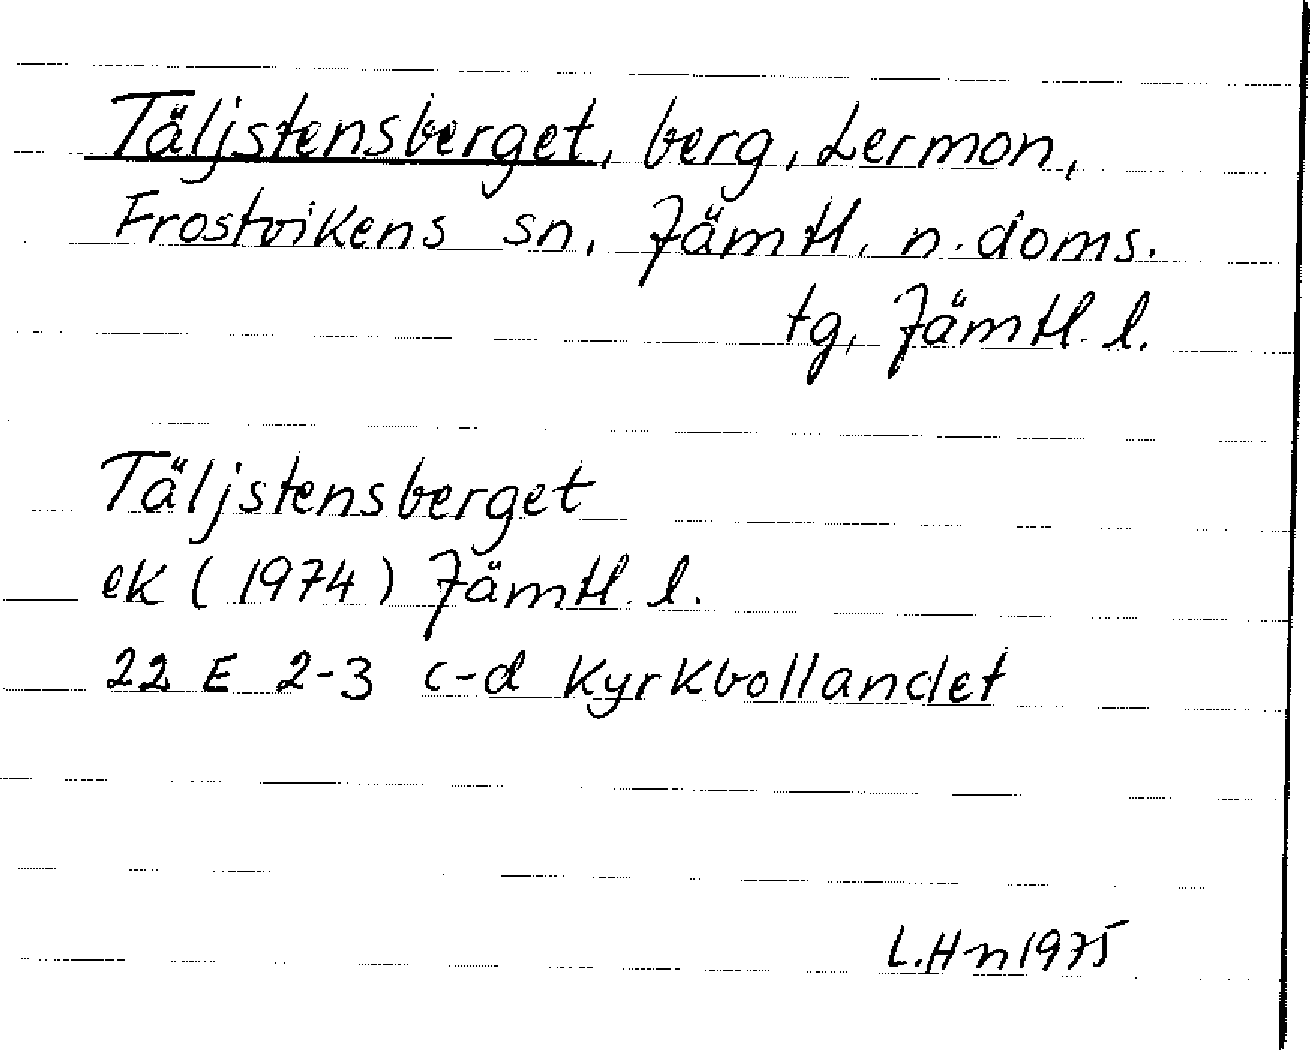 Täljstensberget, berg, Lermon,
Frostvikens sn, Jämtl. n. doms.
tg, Jämtl. l.
Täljstensberget
ek (1974) Jämtl. l.
22 E 2-3 c-d Kyrkbollandet
L.Hn 1975